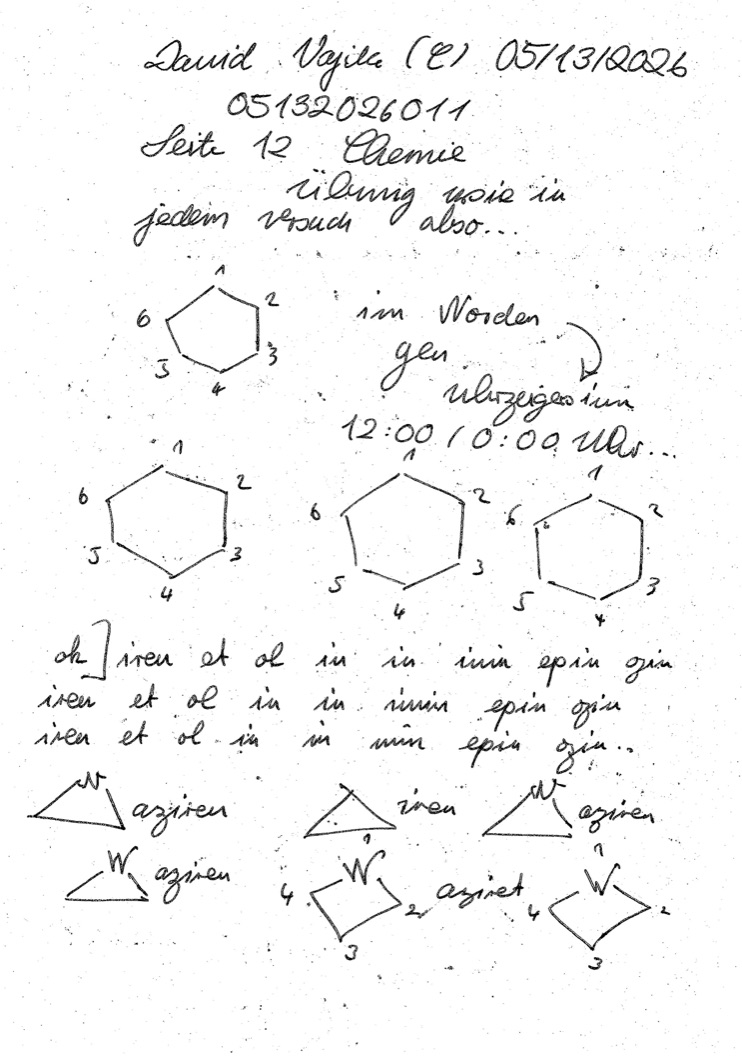 David Vajda (C) 05/13/2026
05132026011
Seite 12 Chemie
übung wie in
jedem versuch also...
1
6 2
5 3
4
im Norden
gen
Uhrzeigersinn
12:00 / 0:00 Uhr...
1 1 1
6 2 6 2 6 2
5 3 5 3 5 3
4 4 4
ok] iren et ol in in inin epin ozin
iren et ol in in inin epin ozin
iren et ol in in inin epin ozin...
N aziren iren N aziren
N aziren 1 N 4 2 3 aziret 1 N 4 2 3